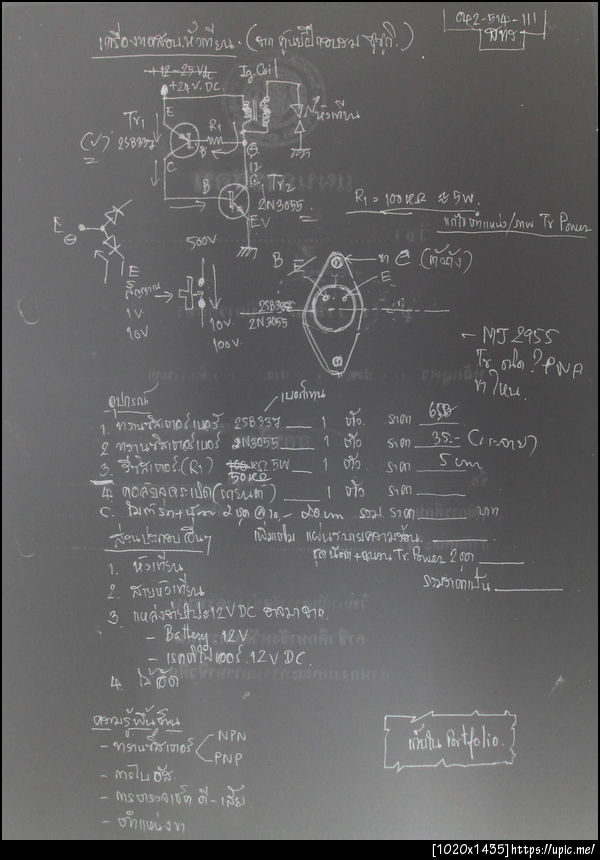 เครื่องทดสอบหัวเทียน. (จาก ศูนย์ฝึกอบรม
042-514-111
+12-25Vdc
+24V.DC.
Ig.Coil
หัวเทียน
E
Tr1
2SB337
R1
B
C
B
Tr2
2N3055
E
R1 = 100KΩ 5W.
แก้ไขตำแหน่ง/ภาพ Tr Power
E
500V
E
สัญญาณ
1V
10V
10V
100V
B E
ขา C (ตัวถัง)
E
2SB337
2N3055
- MJ 2955
Tr ชนิด? PNP
ขาไหน.
อุปกรณ์
เบอร์แทน
1. ทรานซิสเตอร์เบอร์ 2SB337 1 ตัว. ราคา 650
2. ทรานซิสเตอร์เบอร์ 2N3055 1 ตัว. ราคา 35.-
3. รีซิสเตอร์ (R1) 100KΩ 5W 1 ตัว. ราคา 5 บาท
50KΩ
4. คอล์ยจุดระเบิด (รถยนต์) 1 ตัว ราคา
2 ชุด @10.- 20 บาท รวม ราคา บาท
ส่วนประกอบอื่นๆ
เพิ่มเติม แผ่นระบายความร้อน.
ชุดน๊อต+ฉนวน Tr. Power 2 ชุด
รวมราคาเป็น
1. หัวเทียน
2. สายหัวเทียน
3. แหล่งจ่ายไฟ 12V DC อาจมาจาก
- Battery 12V
- เรคติไฟเออร์ 12V DC.
4. ไม้อัด
ความรู้พื้นฐาน
- ทรานซิสเตอร์ NPN
PNP
- การไบอัส
- การตรวจเช็ค ดี-เสีย
- ตำแหน่งขา
เก็บใน Portfolio.
[1020x1435]https://upic.me/